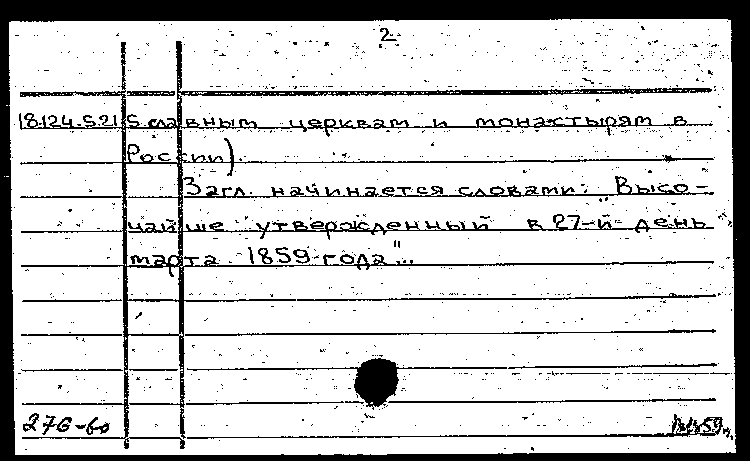 2
18.124.5.21 славным церквам и монастырям в
России).
Загл. начинается словами: „Высо-
чайше утвержденный в 27-й день
марта 1859 года"...
276-60